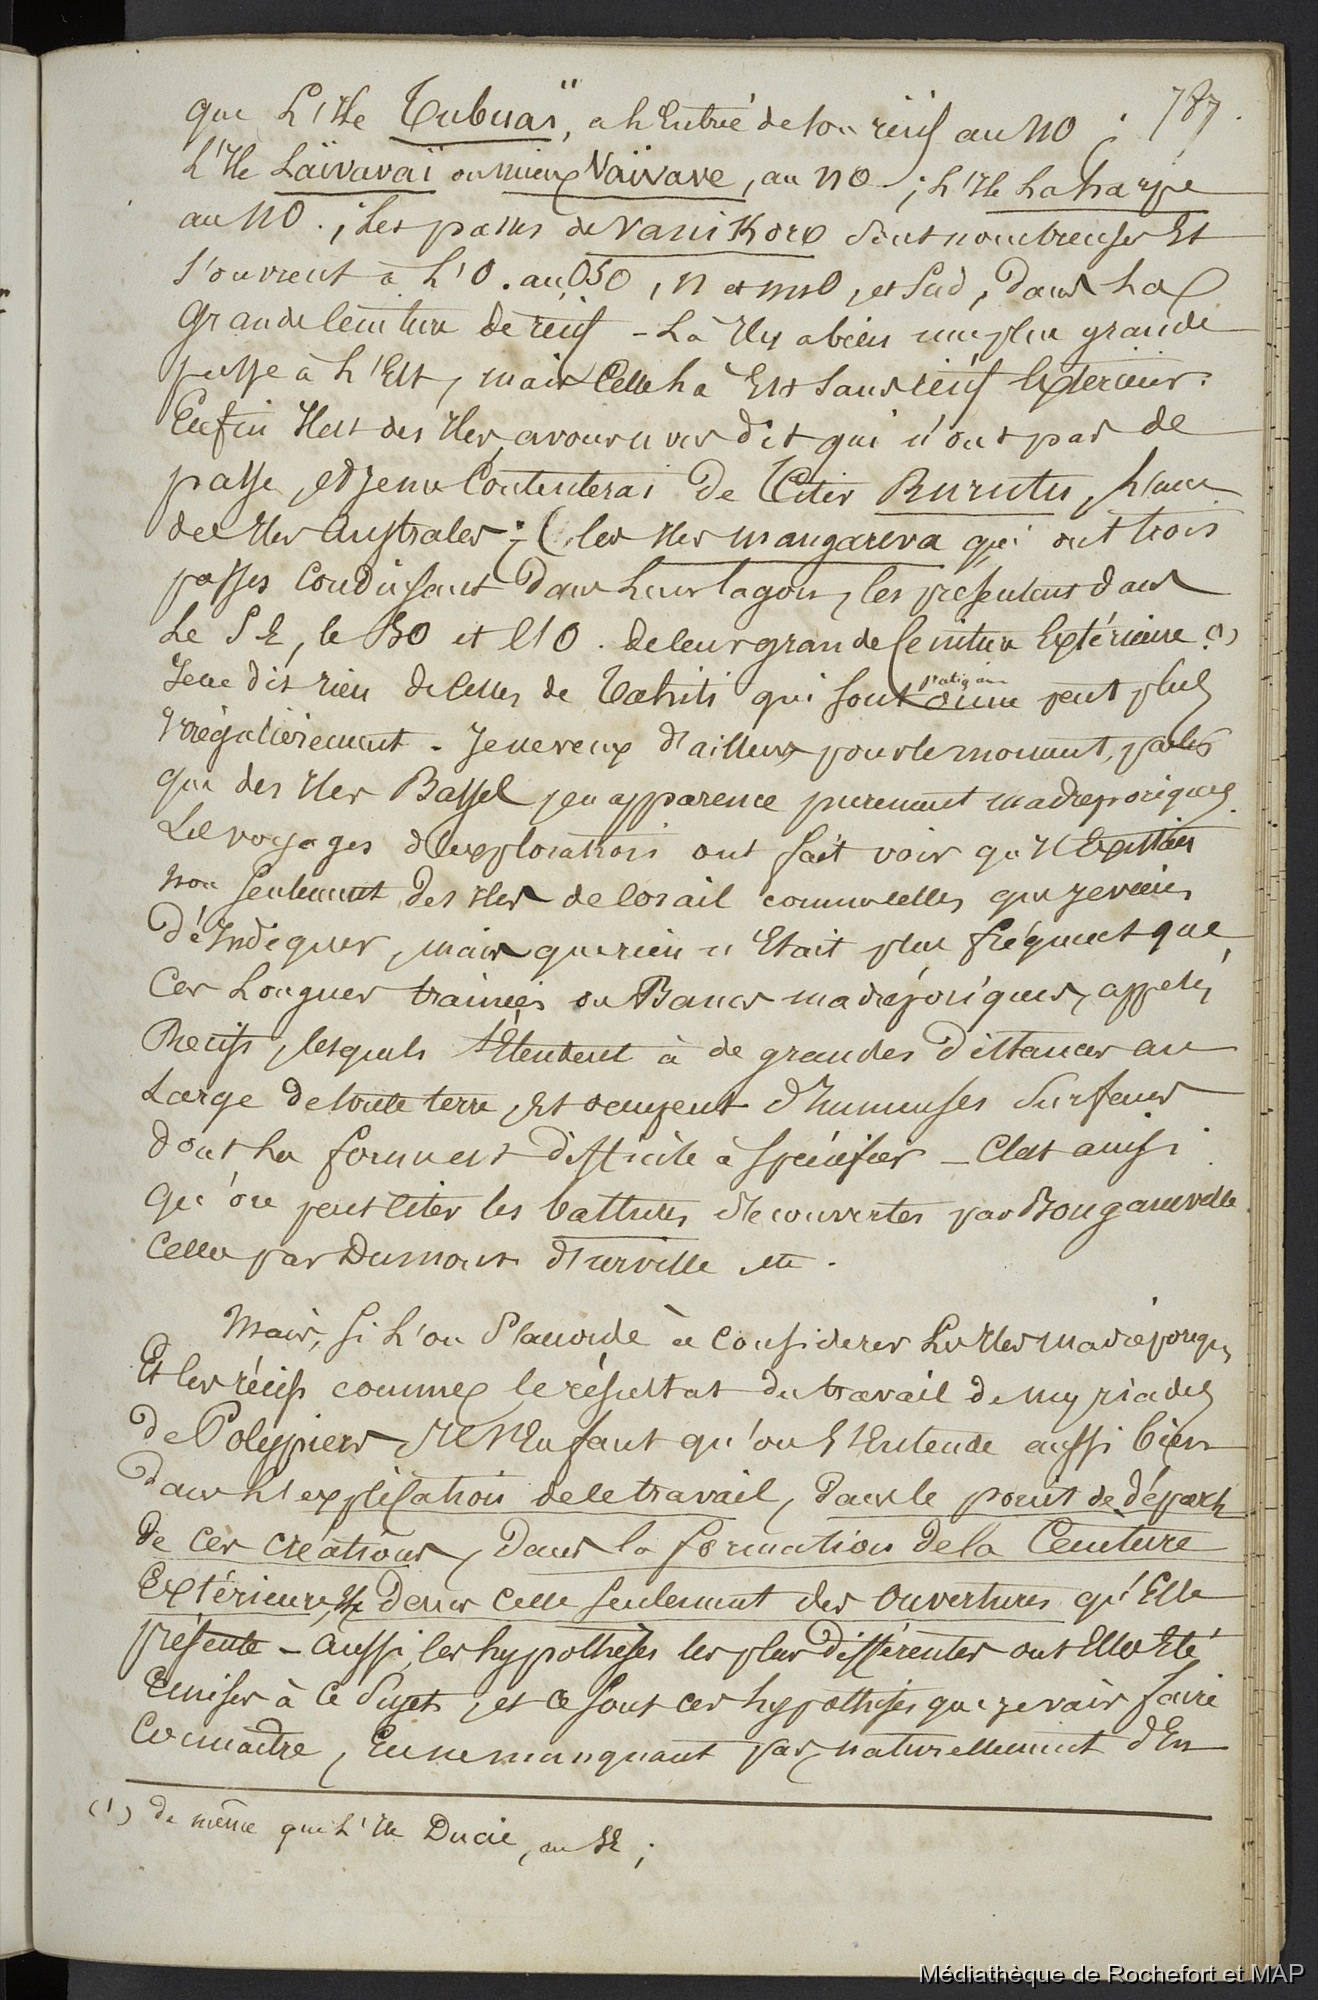 787.
que L'Ile Tubuaï, a L'Entrée de son récif au NO ;
L'Ile Laïvavaï ou mieux Vaïvave, au NO ; L'Ile Laharpe
au NO. ; Les passes de Vanikoro sont nombreuses Et
s'ouvrent à L'O. au OSO, N et NNO, et Sud, Dans La
Grande Ceinture de récif - Là Il y a bien une plus grande
passe à L'Est, mais Celle là Est sans récif Extérieur.
Enfin Il est des Iles, avons nous dit qui n'ont pas de
passe, et je me Contenterai De Citer Rurutu, L'une
des Iles Australes ; (les Iles Mangareva qui ont trois
passes Conduisant Dans Leur lagon, les présentent dans
Le SE, le SO et l'NO. de leur grande Ceinture Extérieure (1)
Je ne dis rien de Celles de Tahiti qui sont
pratiquées
peut plus
Irrégulièrement. Je ne veux d'ailleurs pour le moment, parler
que des Iles Basses, en apparence purement madréporiques
Les voyages d'exploration ont fait voir qu'Il Existait
non seulement des Iles de Corail comme celles que je viens
D'Indiquer, mais que rien n'Etait plus fréquent que
Ces Longues trainées ou Bancs madréporiques, appelés
Récifs, lesquels s'Etendent à de grandes Distances au
Large de toute terre, Et occupent d'Immenses Surfaces
dont La forme est difficile à spécifier - C'est ainsi
qu'on peut Citer les battures découvertes par Bougainville
Celles par Dumont d'urville etc.
Mais, si L'on s'accorde à considerer Les Iles madréporiques
Et les récifs comme le résultat du travail de myriades
De Polypiers Il s'En faut qu'on s'Entende aussi bien
Dans L'explication de ce travail, dans le point de départ
de Ces Créations, Dans la formation de la Ceinture
Extérieure, Et Dans Celle seulement des Ouvertures qu'Elle
présente - Aussi, les hypothèses les plus différentes ont Elles Eté
Emises à Ce Sujet, et Ce sont ces hypothèses que je vais faire
Connaître, En ne manquant pas, naturellement d'En
(1) de même que L'Ile Ducie, au SE ;
Médiathèque de Rochefort et MAP